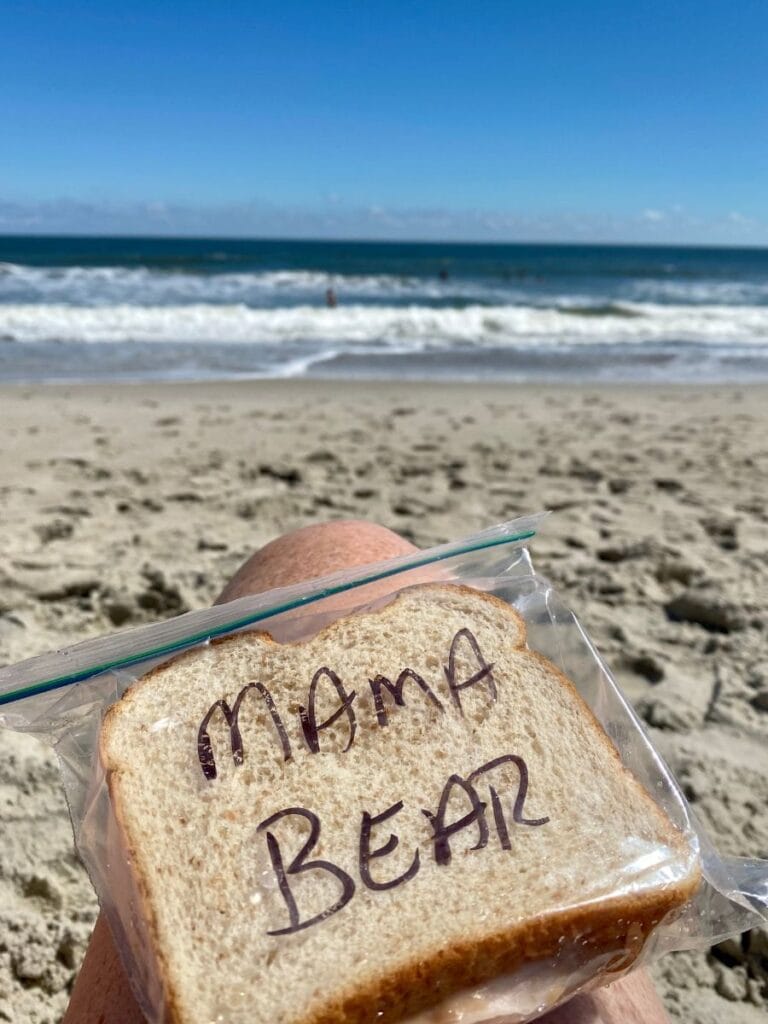 MAMA
BEAR